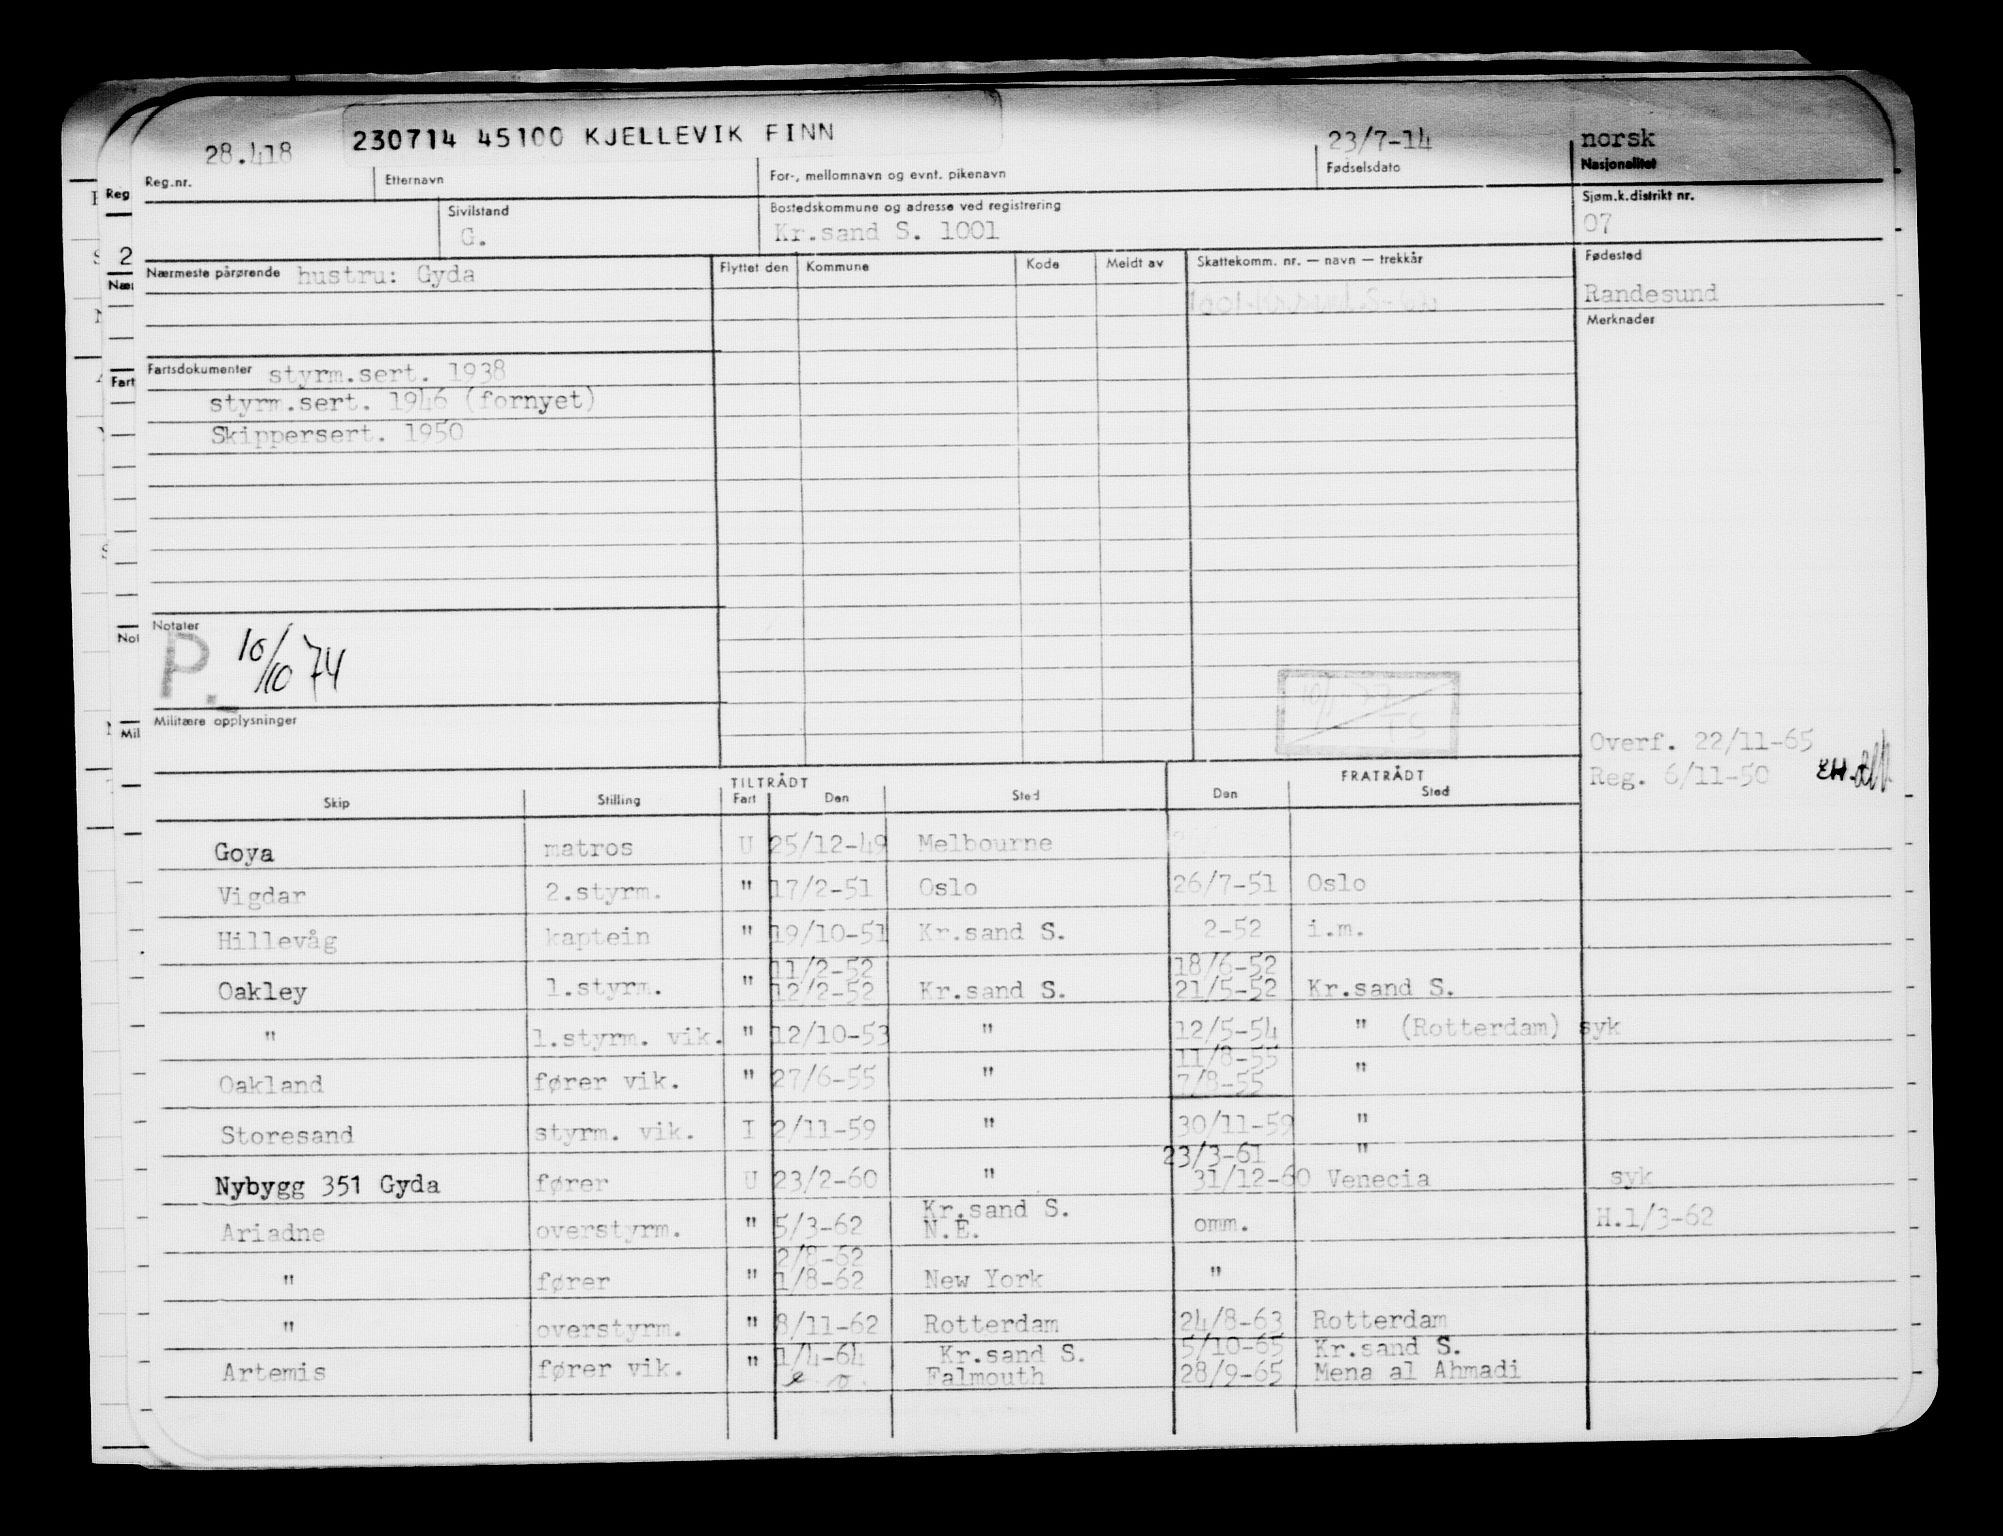 28.418 230714 45100 KJELLEVIK FINN 23/7-14 norsk
Reg.nr. Etternavn For-, mellomnavn og evnt. pikenavn Fødselsdato Nasjonalitet
Reg
Sivilstand Bostedskommune og adresse ved registrering Sjøm.k.distrikt nr.
G. Kr.sand S. 1001 07
2
Nærmeste pårørende hustru: Gyda Flyttet den Kommune Kode Meldt av Skattekomm. nr. — navn — trekkår Fødested
Nær
Randesund
Merknader
Fartsdokumenter styrm.sert. 1938
Fart
styrm.sert. 1946 (fornyet)
Skippersert. 1950
Notater
Not
P. 10/10 74
Militære opplysninger
Mil
Overf. 22/11-65
Reg. 6/11-50 EH.
TILTRÅDT FRATRÅDT
Skip Stilling Fart Den Sted Den Sted
Goya matros U 25/12-49 Melbourne
Vigdar 2.styrm. " 17/2-51 Oslo 26/7-51 Oslo
Hillevåg kaptein " 19/10-51 Kr.sand S. 2-52 i.m.
11/2-52 18/6-52
Oakley 1.styrm. " 12/2-52 Kr.sand S. 21/5-52 Kr.sand S.
" 1.styrm. vik. " 12/10-53 " 12/5-54 " (Rotterdam) syk
11/8-55
Oakland fører vik. " 27/6-55 " 7/8-55 "
Storesand styrm. vik. I 2/11-59 " 30/11-59 "
23/3-61 "
Nybygg 351 Gyda fører U 23/2-60 " 31/12-60 Venecia syk
Kr.sand S.
Ariadne overstyrm. " 5/3-62 N.E. omm. H.1/3-62
2/8-62
" fører " 1/8-62 New York "
" overstyrm. " 8/11-62 Rotterdam 24/8-63 Rotterdam
1/4-64 Kr.sand S. 5/10-65 Kr.sand S.
Artemis fører vik. " Falmouth 28/9-65 Mena al Ahmadi